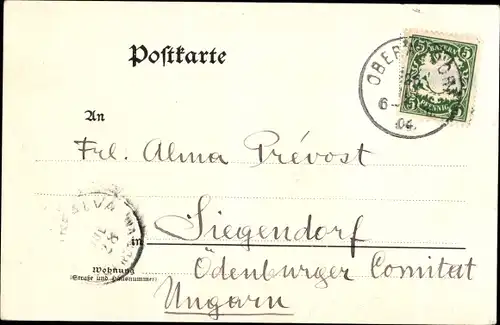 Postkarte
5 5
BAYERN
5 5
PFENNIG
OBER
6-
04.
An
Frl. Alma Prévost
in
Siegendorf
Ödenburger Comitat
Wohnung
(Straße und Hausnummer)
Ungarn